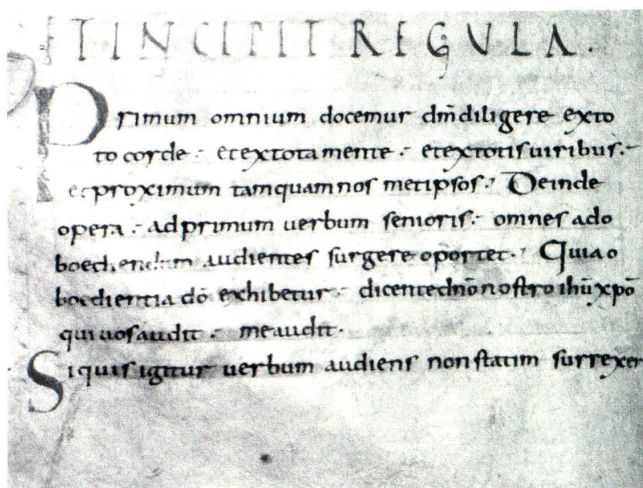 ET INCIPIT REGULA.
Primum omnium docemur dm̄ diligere exto
to corde · et extota mente · et extotis uiribus ·
et proximum tamquam nos metipsos · Deinde
opera · ad primum uerbum senioris · omnes ado
boediendum audientes surgere oportet · Quia o
boedientia dō exhibetur · dicente dn̄o nostro ihū xp̄o
qui uos audit · me audit ·
Siquis igitur uerbum audiens non statim surrexer